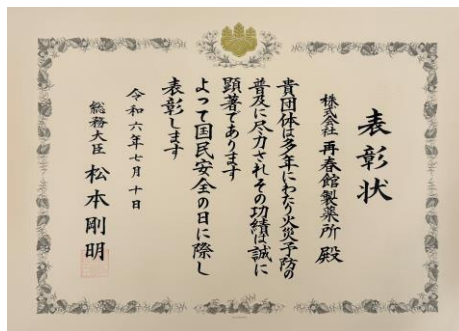 表彰状
株式会社 再春館製薬所 殿
貴団体は多年にわたり火災予防の
普及に尽力されその功績は誠に
顕著であります
よって国民安全の日に際し
表彰します
令和六年七月十日
総務大臣 松本剛明